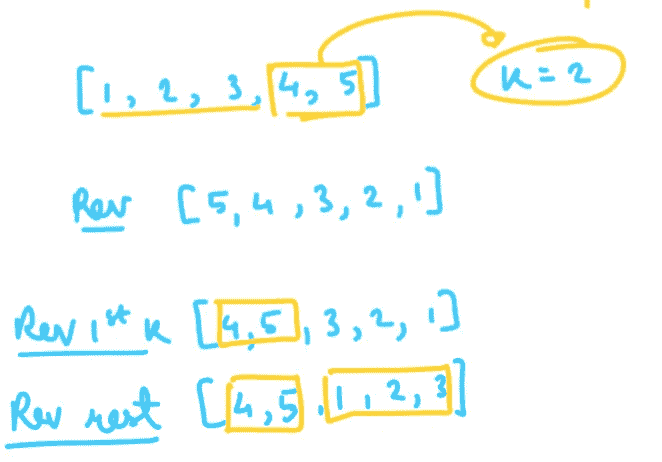 [1, 2, 3, 4, 5] K = 2
Rev [5, 4, 3, 2, 1]
Rev 1st K [4, 5, 3, 2, 1]
Rev rest [4, 5, 1, 2, 3]